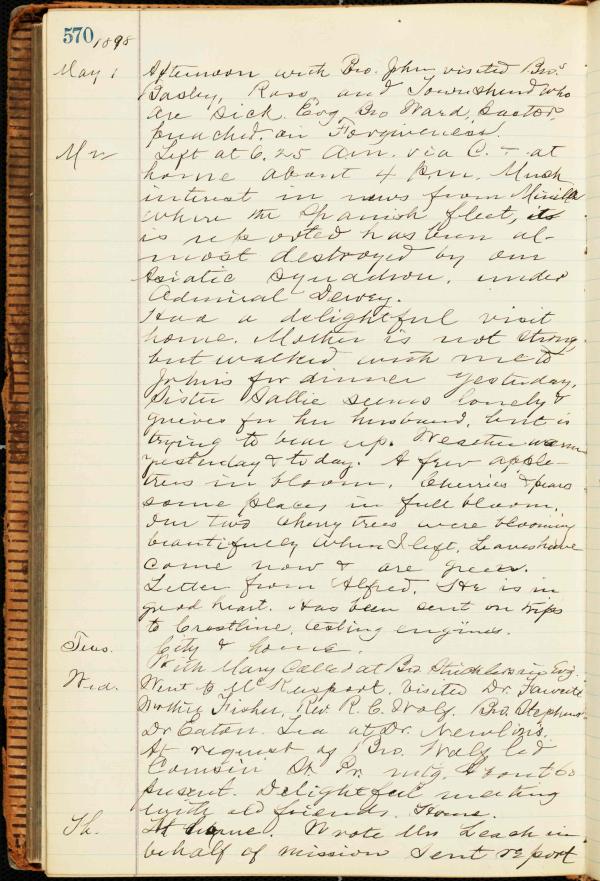 570 1898
May 1 Afternoon with Bro. John visited Bros.
Basley, Ross, and Townshend who
are sick. Evg. Bro Ward, Pastor,
preached, on Forgiveness.
M 2 Left at 6.25 a.m. via C. T. at
home about 4 P.m. Much
interest in news from Minilla
where the Spanish fleet, its
is reported has been al-
most destroyed by our
Asiatic squadron, under
Admiral Dewey.
Had a delightful visit
home. Mother is not strong
but walked with me to
John's for dinner yesterday.
Sister Sallie seems lonely &
grieves for her husband, but is
trying to bear up. Weather warm
yesterday & to day. A few apple-
trees in bloom. Cherries & pears
some places in full bloom.
Our two cherry trees were blooming
beautifully when I left. Leaves have
come now & are green.
Letter from Alfred. He is in
good heart. Has been sent on trips
to Crestline, testing engines.
Tues. City & home.
With Mary called at Bro. in Evg.
Wed. Went to McKeesport. Visited Dr.
Mother Fisher, Rev. R. C. Wolf. Bro. Stephens.
Dr Eaton. Tea at Dr. Newlin's.
At request of Bro. Wolf led
Comsin St. Pr. mtg. About 60
present. Delightful meeting
with old friends. Home.
Th. At home. Wrote Mrs Leach in
behalf of mission Sent report